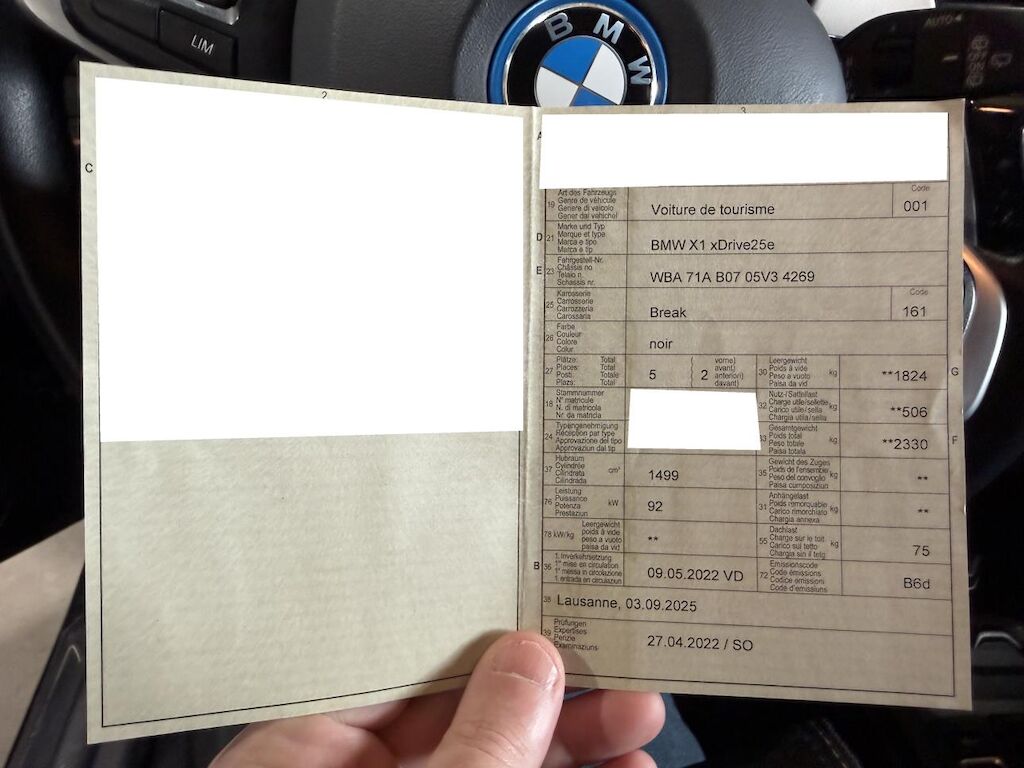 LIM
BMW
AUTO
2
3
C
A
19 Art des Fahrzeugs
Genre de véhicule
Genere di veicolo
Gener dal vehichel
Voiture de tourisme
Code
001
D 21 Marke und Typ
Marque et type
Marca e tipo
Marca e tip
BMW X1 xDrive25e
E 23 Fahrgestell-Nr.
Châssis no
Telaio n.
Schassis nr.
WBA 71A B07 05V3 4269
25 Karosserie
Carrosserie
Carrozzeria
Carossaria
Break
Code
161
26 Farbe
Couleur
Colore
Colur
noir
27 Plätze: Total
Places: Total
Posti: Totale
Plazs: Total
5
( vorne)
( avant)
2 anteriori)
davant)
30 Leergewicht
Poids à vide
Peso a vuoto
Paisa da vid
kg
**1824
G
18 Stammnummer
N° matricule
N. di matricola
Nr. da matricla
32 Nutz-/Sattellast
Charge utile/sellette
Carico utile/sella
Chargia utila/sella
kg
**506
24 Typengenehmigung
Réception par type
Approvazione del tipo
Approvaziun dal tip
33 Gesamtgewicht
Poids total
Peso totale
Paisa totala
kg
**2330
F
37 Hubraum
Cylindrée
Cilindrata
Cilindrada
cm³
1499
35 Gewicht des Zuges
Poids de l'ensemble
Peso del convoglio
Paisa cumposiziun
kg
**
76 Leistung
Puissance
Potenza
Prestaziun
kW
92
31 Anhängelast
Poids remorquable
Carico rimorchiato
Chargia annexa
kg
**
78 kW/kg Leergewicht
poids à vide
peso a vuoto
paisa da vid
**
55 Dachlast
Charge sur le toit
Carico sul tetto
Chargia sin il tetg
kg
75
B 36 1. Inverkehrsetzung
1re mise en circulation
1a messa in circolazione
1. entrada en circulaziun
09.05.2022 VD
72 Emissionscode
Code émissions
Codice emissioni
Code d'emissiuns
B6d
38 Lausanne, 03.09.2025
39 Prüfungen
Expertises
Perizie
Examinaziuns
27.04.2022 / SO